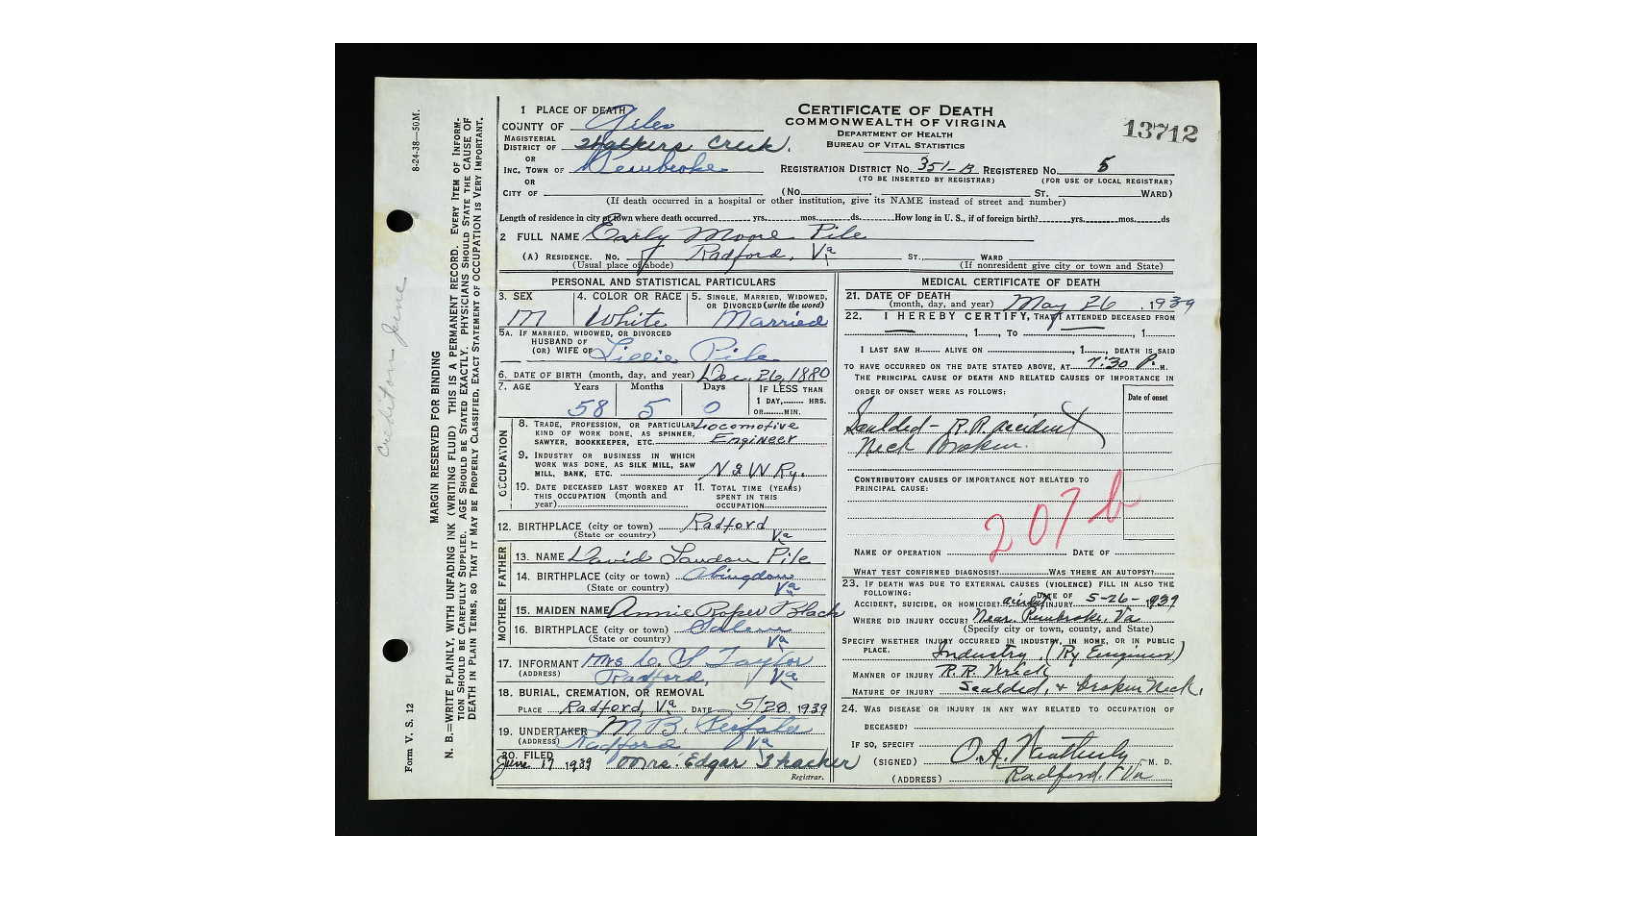 1 PLACE OF DEATH
COUNTY OF Giles
MAGISTERIAL DISTRICT OF Walkers Creek.
OR
INC. TOWN OF Pembroke
OR
CITY OF
CERTIFICATE OF DEATH
COMMONWEALTH OF VIRGINIA
DEPARTMENT OF HEALTH
BUREAU OF VITAL STATISTICS
13712
REGISTRATION DISTRICT NO. 351-B REGISTERED NO. 5
(TO BE INSERTED BY REGISTRAR) (FOR USE OF LOCAL REGISTRAR)
(No. ST. WARD)
(If death occurred in a hospital or other institution, give its NAME instead of street and number)
Length of residence in city or town where death occurred yrs. mos. ds. How long in U. S., if of foreign birth? yrs. mos. ds
2 FULL NAME Early Moore Pile
(A) RESIDENCE. No. Radford, Va ST. WARD
(Usual place of abode) (If nonresident give city or town and State)
PERSONAL AND STATISTICAL PARTICULARS
3. SEX 4. COLOR OR RACE 5. SINGLE, MARRIED, WIDOWED, OR DIVORCED (write the word)
M White Married
5A. IF MARRIED, WIDOWED, OR DIVORCED
HUSBAND OF
(OR) WIFE OF Lillie Pile
6. DATE OF BIRTH (month, day, and year) Dec. 26, 1880
7. AGE Years Months Days IF LESS THAN
1 DAY, HRS.
58 5 0 OR MIN.
OCCUPATION
8. TRADE, PROFESSION, OR PARTICULAR KIND OF WORK DONE, AS SPINNER, SAWYER, BOOKKEEPER, ETC. Locomotive Engineer
9. INDUSTRY OR BUSINESS IN WHICH WORK WAS DONE, AS SILK MILL, SAW MILL, BANK, ETC. N & W Ry.
10. DATE DECEASED LAST WORKED AT THIS OCCUPATION (month and year)
11. TOTAL TIME (YEARS) SPENT IN THIS OCCUPATION
12. BIRTHPLACE (city or town) Radford
(State or country) Va
FATHER
13. NAME David Landon Pile
14. BIRTHPLACE (city or town) Abingdon
(State or country) Va
MOTHER
15. MAIDEN NAME Annie Roper Black
16. BIRTHPLACE (city or town) Salem
(State or country) Va
17. INFORMANT Mrs C. S Taylor
(ADDRESS) Radford, Va
18. BURIAL, CREMATION, OR REMOVAL
PLACE Radford, Va DATE 5/28 1939
19. UNDERTAKER M B.
(ADDRESS) Radford Va
20. FILED
June 17 1939 Mrs. Edgar Thacker
Registrar.
MEDICAL CERTIFICATE OF DEATH
21. DATE OF DEATH
(month, day, and year) May 26, 1939
22. I HEREBY CERTIFY, THAT I ATTENDED DECEASED FROM
, 1 , TO , 1
I LAST SAW H ALIVE ON , 1 , DEATH IS SAID
TO HAVE OCCURRED ON THE DATE STATED ABOVE, AT 7:30 P. M.
THE PRINCIPAL CAUSE OF DEATH AND RELATED CAUSES OF IMPORTANCE IN
ORDER OF ONSET WERE AS FOLLOWS:
Date of onset
Scalded - R.R. accident
Neck Broken.
CONTRIBUTORY CAUSES OF IMPORTANCE NOT RELATED TO
PRINCIPAL CAUSE:
207 b
NAME OF OPERATION DATE OF
WHAT TEST CONFIRMED DIAGNOSIS? WAS THERE AN AUTOPSY?
23. IF DEATH WAS DUE TO EXTERNAL CAUSES (VIOLENCE) FILL IN ALSO THE
FOLLOWING:
ACCIDENT, SUICIDE, OR HOMICIDE? accident DATE OF INJURY 5-26-1939
WHERE DID INJURY OCCUR? Near Pembroke, Va
(Specify city or town, county, and State)
SPECIFY WHETHER INJURY OCCURRED IN INDUSTRY, IN HOME, OR IN PUBLIC
PLACE. Industry (Ry Engineer)
MANNER OF INJURY R.R. Wreck
NATURE OF INJURY Scalded, & broken Neck.
24. WAS DISEASE OR INJURY IN ANY WAY RELATED TO OCCUPATION OF
DECEASED?
IF SO, SPECIFY
(SIGNED) O. A. Weatherly M. D.
(ADDRESS) Radford, Va
8-24-38—50M.
MARGIN RESERVED FOR BINDING
N. B.—WRITE PLAINLY, WITH UNFADING INK (WRITING FLUID) THIS IS A PERMANENT RECORD. EVERY ITEM OF INFORM-
TION SHOULD BE CAREFULLY SUPPLIED. AGE SHOULD BE STATED EXACTLY. PHYSICIANS SHOULD STATE THE CAUSE OF
DEATH IN PLAIN TERMS, SO THAT IT MAY BE PROPERLY CLASSIFIED. EXACT STATEMENT OF OCCUPATION IS VERY IMPORTANT.
Form V. S. 12
June